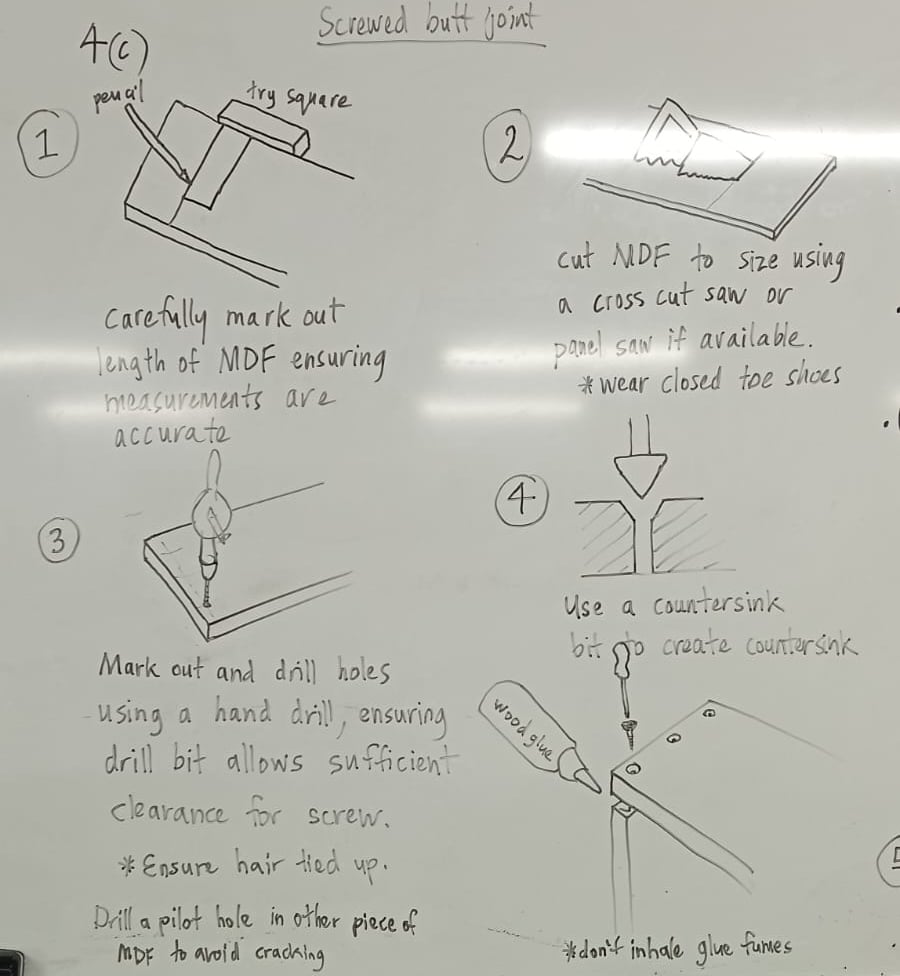 Screwed butt joint
4(c)
1
pencil
try square
Carefully mark out
length of MDF ensuring
measurements are
accurate
2
cut MDF to size using
a cross cut saw or
panel saw if available.
* wear closed toe shoes
3
Mark out and drill holes
using a hand drill, ensuring
drill bit allows sufficient
clearance for screw.
* Ensure hair tied up.
Drill a pilot hole in other piece of
MDF to avoid cracking
4
Use a countersink
bit to create countersink
wood glue
* don't inhale glue fumes